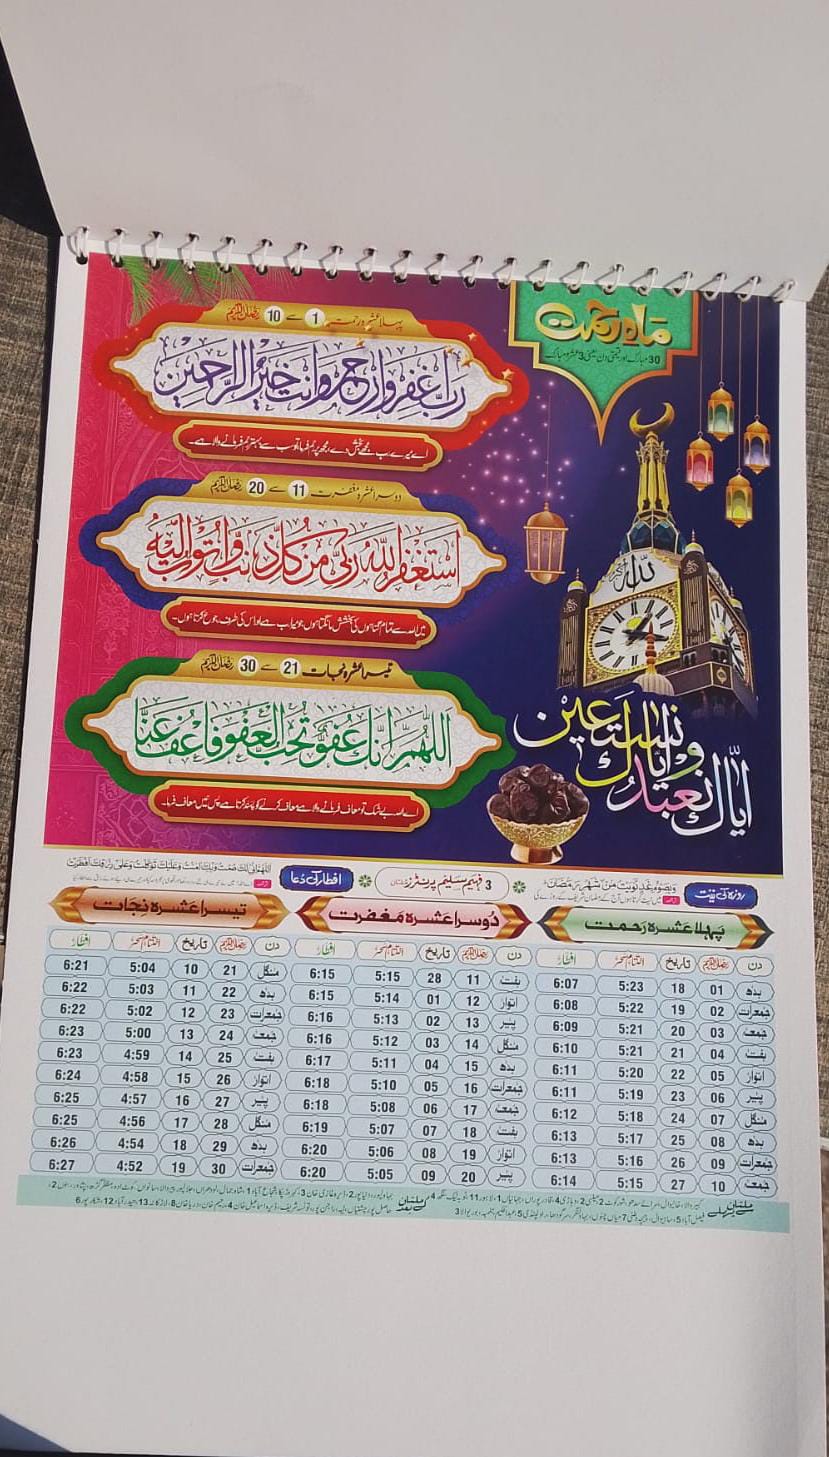 ماہِ رحمت
30 مبارک اور قیمتی دن یعنی 3 عشرہ مبارک
پہلا عشرہ رحمت 1 سے 10
رب اغفر وارحم وانت خیر الرحمین
اے میرے رب مجھے بخش دے، مجھ پر رحم فرما، تو سب سے بہتر رحم فرمانے والا ہے۔
دوسرا عشرہ مغفرت 11 سے 20
استغفر اللہ ربی من کل ذنب واتوب الیہ
میں اللہ سے تمام گناہوں کی بخشش مانگتا ہوں جو میرا رب ہے اور اس کی طرف رجوع کرتا ہوں۔
تیسرا عشرہ نجات 21 سے 30
اللھم انک عفو تحب العفو فاعف عنا
اے اللہ بے شک تو معاف فرمانے والا ہے معاف کرنے کو پسند کرتا ہے پس ہمیں معاف فرما۔
ایاک نعبد
وایاک نستعین
روزہ کی نیت
وبصوم غد نویت من شھر رمضان
3 فہیم سلیم پرنٹرز
افطار کی دعا
اللھم انی لک صمت وبک امنت وعلیک توکلت وعلی رزقک افطرت
پہلا عشرہ رحمت
دن تاریخ افطار
بدھ 01 18 5:23 6:07
جمعرات 02 19 5:22 6:08
جمعہ 03 20 5:21 6:09
ہفتہ 04 21 5:21 6:10
اتوار 05 22 5:20 6:11
پیر 06 23 5:19 6:11
منگل 07 24 5:18 6:12
بدھ 08 25 5:17 6:13
جمعرات 09 26 5:16 6:13
جمعہ 10 27 5:15 6:14
دوسرا عشرہ مغفرت
دن تاریخ افطار
ہفتہ 11 28 5:15 6:15
اتوار 12 01 5:14 6:15
پیر 13 02 5:13 6:16
منگل 14 03 5:12 6:16
بدھ 15 04 5:11 6:17
جمعرات 16 05 5:10 6:18
جمعہ 17 06 5:08 6:18
ہفتہ 18 07 5:07 6:19
اتوار 19 08 5:06 6:20
پیر 20 09 5:05 6:20
تیسرا عشرہ نجات
دن تاریخ افطار
منگل 21 10 5:04 6:21
بدھ 22 11 5:03 6:22
جمعرات 23 12 5:02 6:22
جمعہ 24 13 5:00 6:23
ہفتہ 25 14 4:59 6:23
اتوار 26 15 4:58 6:24
پیر 27 16 4:57 6:25
منگل 28 17 4:56 6:25
بدھ 29 18 4:54 6:26
جمعرات 30 19 4:52 6:27